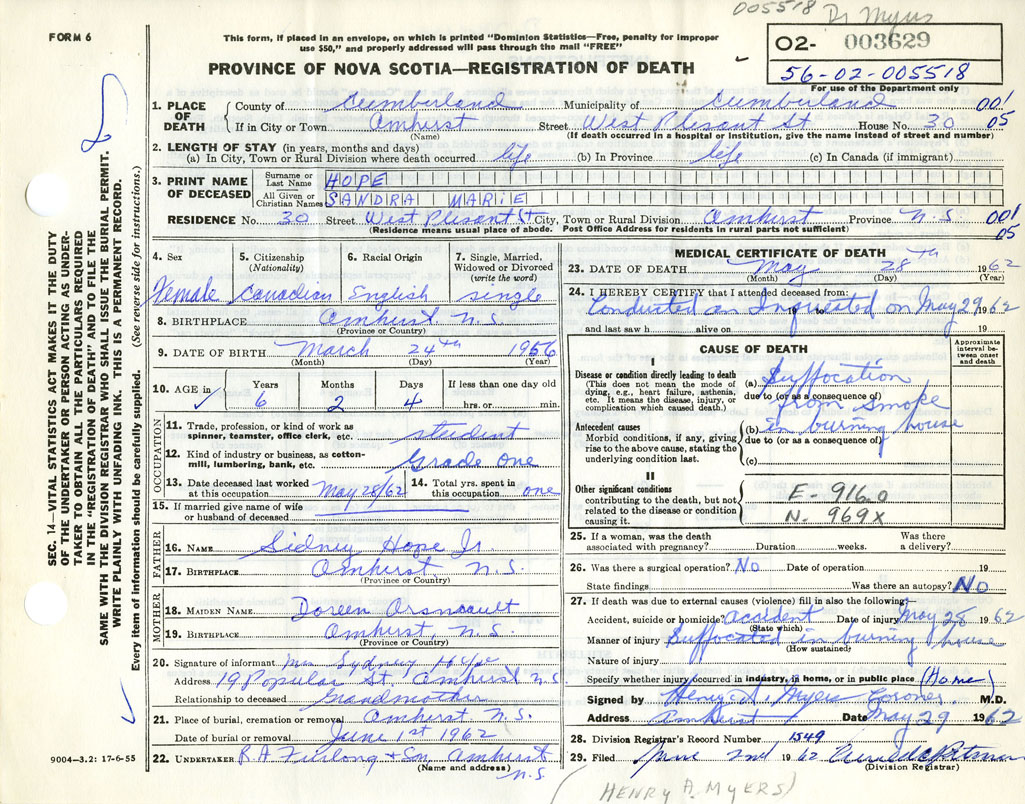 005518 Dr Myers
FORM 6
This form, if placed in an envelope, on which is printed "Dominion Statistics—Free, penalty for improper
use $50," and properly addressed will pass through the mail "FREE"
O2- 003629
56-02-005518
For use of the Department only
PROVINCE OF NOVA SCOTIA—REGISTRATION OF DEATH
1. PLACE OF DEATH County of Cumberland Municipality of Cumberland 001
If in City or Town Amherst Street West Plesant St House No. 30 05
(Name) (If death occurred in a hospital or institution, give the name instead of street and number)
2. LENGTH OF STAY (in years, months and days)
(a) In City, Town or Rural Division where death occurred life (b) In Province life (c) In Canada (if immigrant)
3. PRINT NAME OF DECEASED Surname or Last Name HOPE
All Given or Christian Names SANDRA MARIE
RESIDENCE No. 30 Street West Plesant St City, Town or Rural Division Amherst Province N.S. 001
(Residence means usual place of abode. Post Office Address for residents in rural parts not sufficient) 05
4. Sex 5. Citizenship (Nationality) 6. Racial Origin 7. Single, Married, Widowed or Divorced (write the word)
Female Canadian English single
8. BIRTHPLACE Amherst N.S.
(Province or Country)
9. DATE OF BIRTH March 24th 1956
(Month) (Day) (Year)
10. AGE in Years Months Days If less than one day old
6 2 4 hrs. or min.
OCCUPATION
11. Trade, profession, or kind of work as
spinner, teamster, office clerk, etc. student
12. Kind of industry or business, as cotton-
mill, lumbering, bank, etc. Grade one
13. Date deceased last worked at this occupation May 28/62 14. Total yrs. spent in this occupation one
15. If married give name of wife
or husband of deceased
FATHER
16. NAME Sidney Hope Jr.
17. BIRTHPLACE Amherst N.S.
(Province or Country)
MOTHER
18. MAIDEN NAME Doreen Arsnault
19. BIRTHPLACE Amherst, N.S.
(Province or Country)
20. Signature of informant Mrs Sydney Hope
Address 19 Popular St, Amherst N.S.
Relationship to deceased Grandmother
21. Place of burial, cremation or removal Amherst N.S.
Date of burial or removal June 1st 1962
22. UNDERTAKER R.A. Furlong & Son Amherst
(Name and address) N.S.
MEDICAL CERTIFICATE OF DEATH
23. DATE OF DEATH May 28th 1962
(Month) (Day) (Year)
24. I HEREBY CERTIFY that I attended deceased from:
Conducted an Inquested on May 29 1962
19 to
and last saw h alive on 19
CAUSE OF DEATH
Approximate interval be-tween onset and death
I
Disease or condition directly leading to death
(This does not mean the mode of
dying, e.g., heart failure, asthenia,
etc. It means the disease, injury, or
complication which caused death.)
(a) Suffocation
due to (or as a consequence of)
from smoke
Antecedent causes
Morbid conditions, if any, giving
rise to the above cause, stating the
underlying condition last.
(b) in burning house
due to (or as a consequence of)
(c)
II
Other significant conditions
contributing to the death, but not
related to the disease or condition
causing it.
E-916.0
N-969X
25. If a woman, was the death Was there
associated with pregnancy? Duration weeks. a delivery?
26. Was there a surgical operation? No Date of operation 19
State findings Was there an autopsy? No
27. If death was due to external causes (violence) fill in also the following:
Accident, suicide or homicide? accident Date of injury May 28 1962
(State which)
Manner of injury Suffocated in burning house
(How sustained)
Nature of injury
Specify whether injury occurred in industry, in home, or in public place (Home)
Signed by Henry A. Myers Coroner M.D.
Address Amherst Date May 29 1962
28. Division Registrar's Record Number 1549
29. Filed June 2nd 1962
(Division Registrar)
(HENRY A. MYERS)
SEC. 14—VITAL STATISTICS ACT MAKES IT THE DUTY
OF THE UNDERTAKER OR PERSON ACTING AS UNDER-
TAKER TO OBTAIN ALL THE PARTICULARS REQUIRED
IN THE "REGISTRATION OF DEATH" AND TO FILE THE
SAME WITH THE DIVISION REGISTRAR WHO SHALL ISSUE THE BURIAL PERMIT.
WRITE PLAINLY WITH UNFADING INK. THIS IS A PERMANENT RECORD.
Every item of information should be carefully supplied. (See reverse side for instructions.)
9004—3.2: 17-6-55